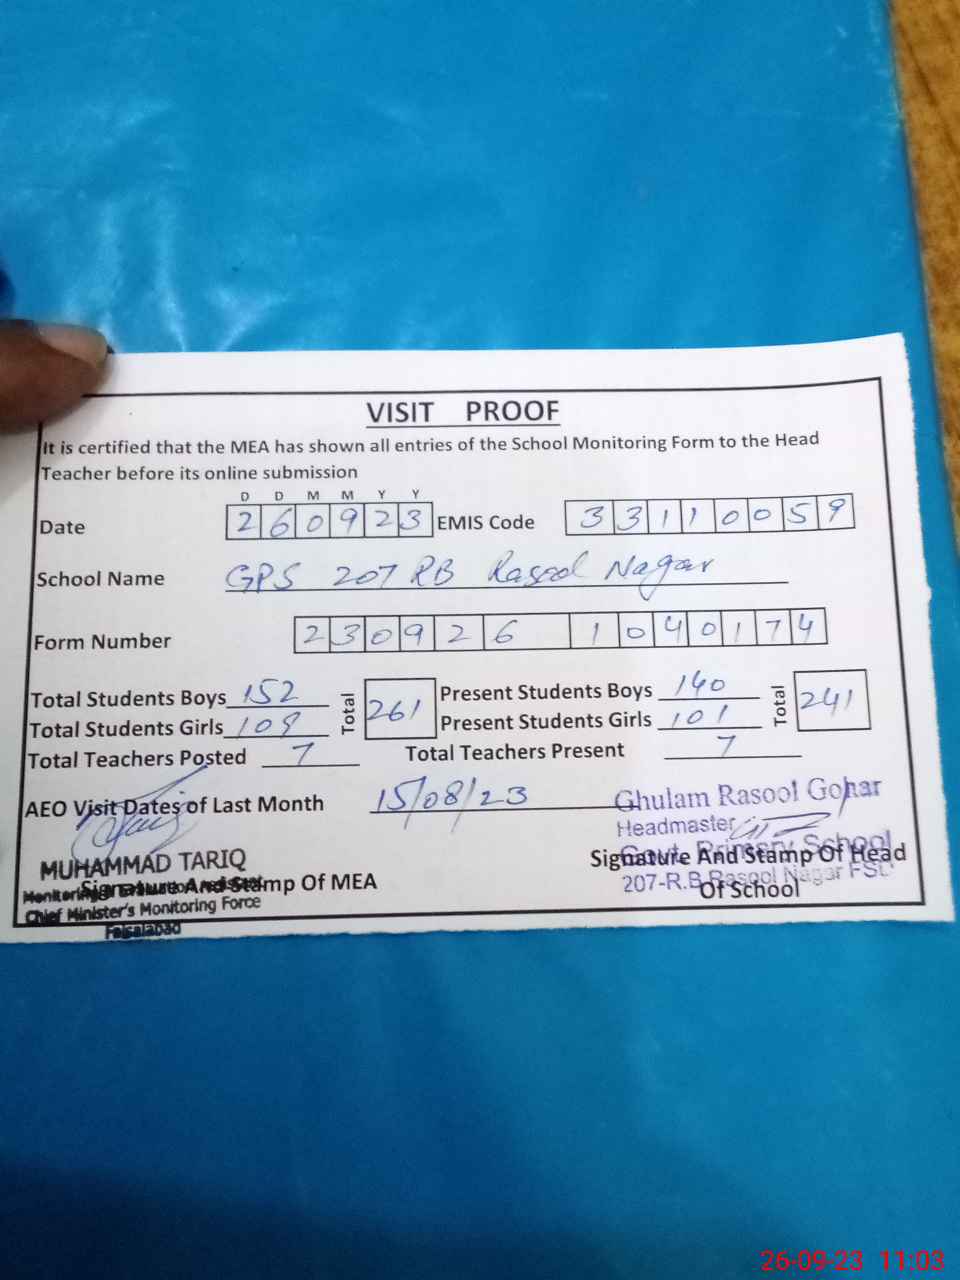 VISIT PROOF
It is certified that the MEA has shown all entries of the School Monitoring Form to the Head
Teacher before its online submission
D D M M Y Y
Date 2 6 0 9 2 3 EMIS Code 3 3 1 1 0 0 5 9
School Name GPS 207 RB Rasool Nagar
Form Number 2 3 0 9 2 6 1 0 4 0 1 7 4
Total Students Boys 152 Total 261 Present Students Boys 140 Total 241
Total Students Girls 109 Present Students Girls 101
Total Teachers Posted 7 Total Teachers Present 7
AEO Visit Dates of Last Month 15/08/23
Ghulam Rasool Gohar
Headmaster
Govt. Primary School
207-R.B Rasool Nagar FSD
Signature And Stamp Of Head
Of School
MUHAMMAD TARIQ
Monitoring
Signature And Stamp Of MEA
Chief Minister's Monitoring Force
Faisalabad
26-09-23 11:03